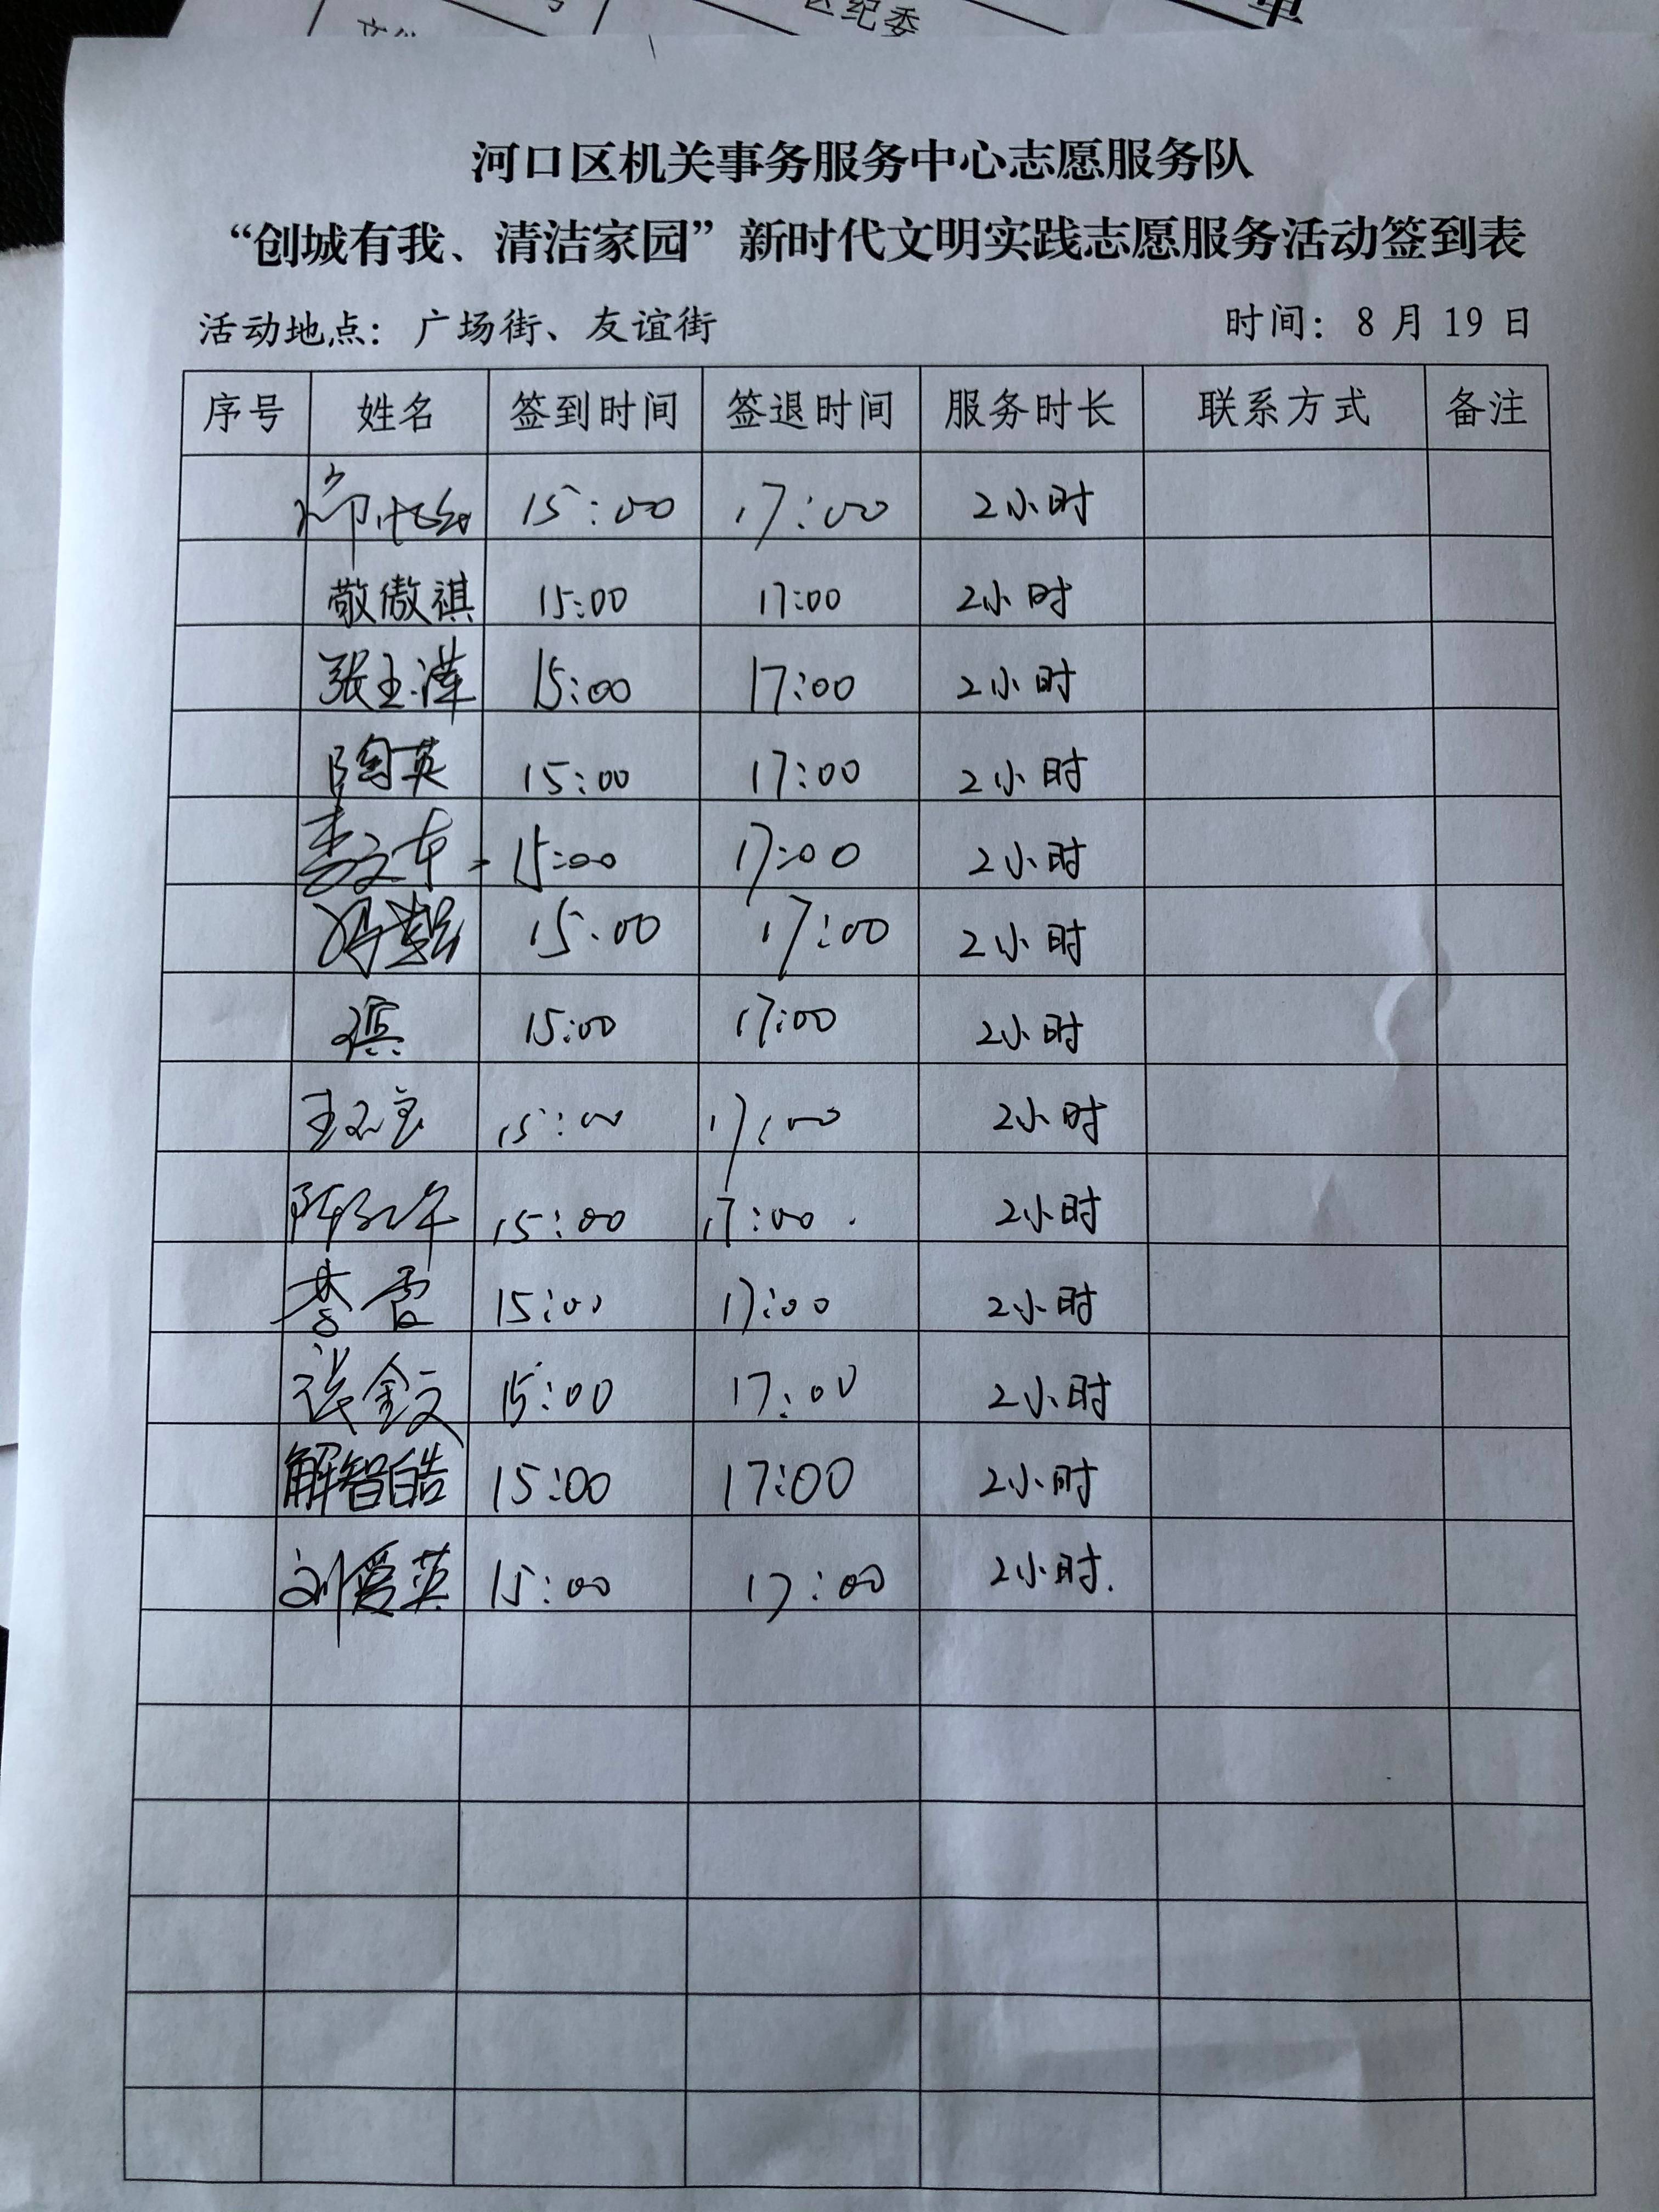 区纪委
河口区机关事务服务中心志愿服务队
“创城有我、清洁家园”新时代文明实践志愿服务活动签到表
活动地点：广场街、友谊街 时间：8月19日
序号 姓名 签到时间 签退时间 服务时长 联系方式 备注
15:00 17:00 2小时
敬傲祺 15:00 17:00 2小时
张玉 15:00 17:00 2小时
陶英 15:00 17:00 2小时
李文东 15:00 17:00 2小时
15:00 17:00 2小时
15:00 17:00 2小时
15:00 17:00 2小时
15:00 17:00 2小时
李雷 15:00 17:00 2小时
张金文 15:00 17:00 2小时
解智皓 15:00 17:00 2小时
刘爱英 15:00 17:00 2小时.